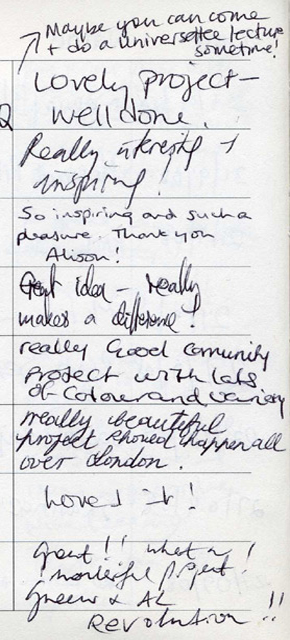 Maybe you can come
+ do a universettee lecture
sometime!
Lovely project -
well done.
Really interesting +
inspiring!
So inspiring and such a
pleasure. Thank you
Alison!
Great idea - really
makes a difference!
really Good comunity
project with lots
of colour and variety
really beautiful
project should happen all
over London.
Loved it!
Great!! what a
wonderful project!
Green &
Revolution!!